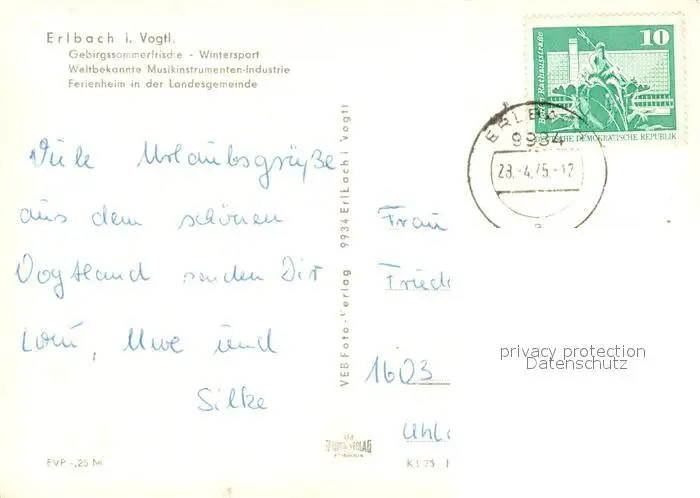 Erlbach i. Vogtl.
Gebirgssommerfrische - Wintersport
Weltbekannte Musikinstrumenten-Industrie
Ferienheim in der Landesgemeinde
Viele Urlaubsgrüße
aus dem schönen
Vogtland senden Dir
Uwe und
Silke
VEB Foto-Verlag 9934 Erlbach i. Vogtl
10
Berlin Rathausstraße
DEUTSCHE DEMOKRATISCHE REPUBLIK
9934
23.-4.75.-12
a
Frau
Fried
1603
privacy protection
Datenschutz
EVP -,25 M
K 1 75